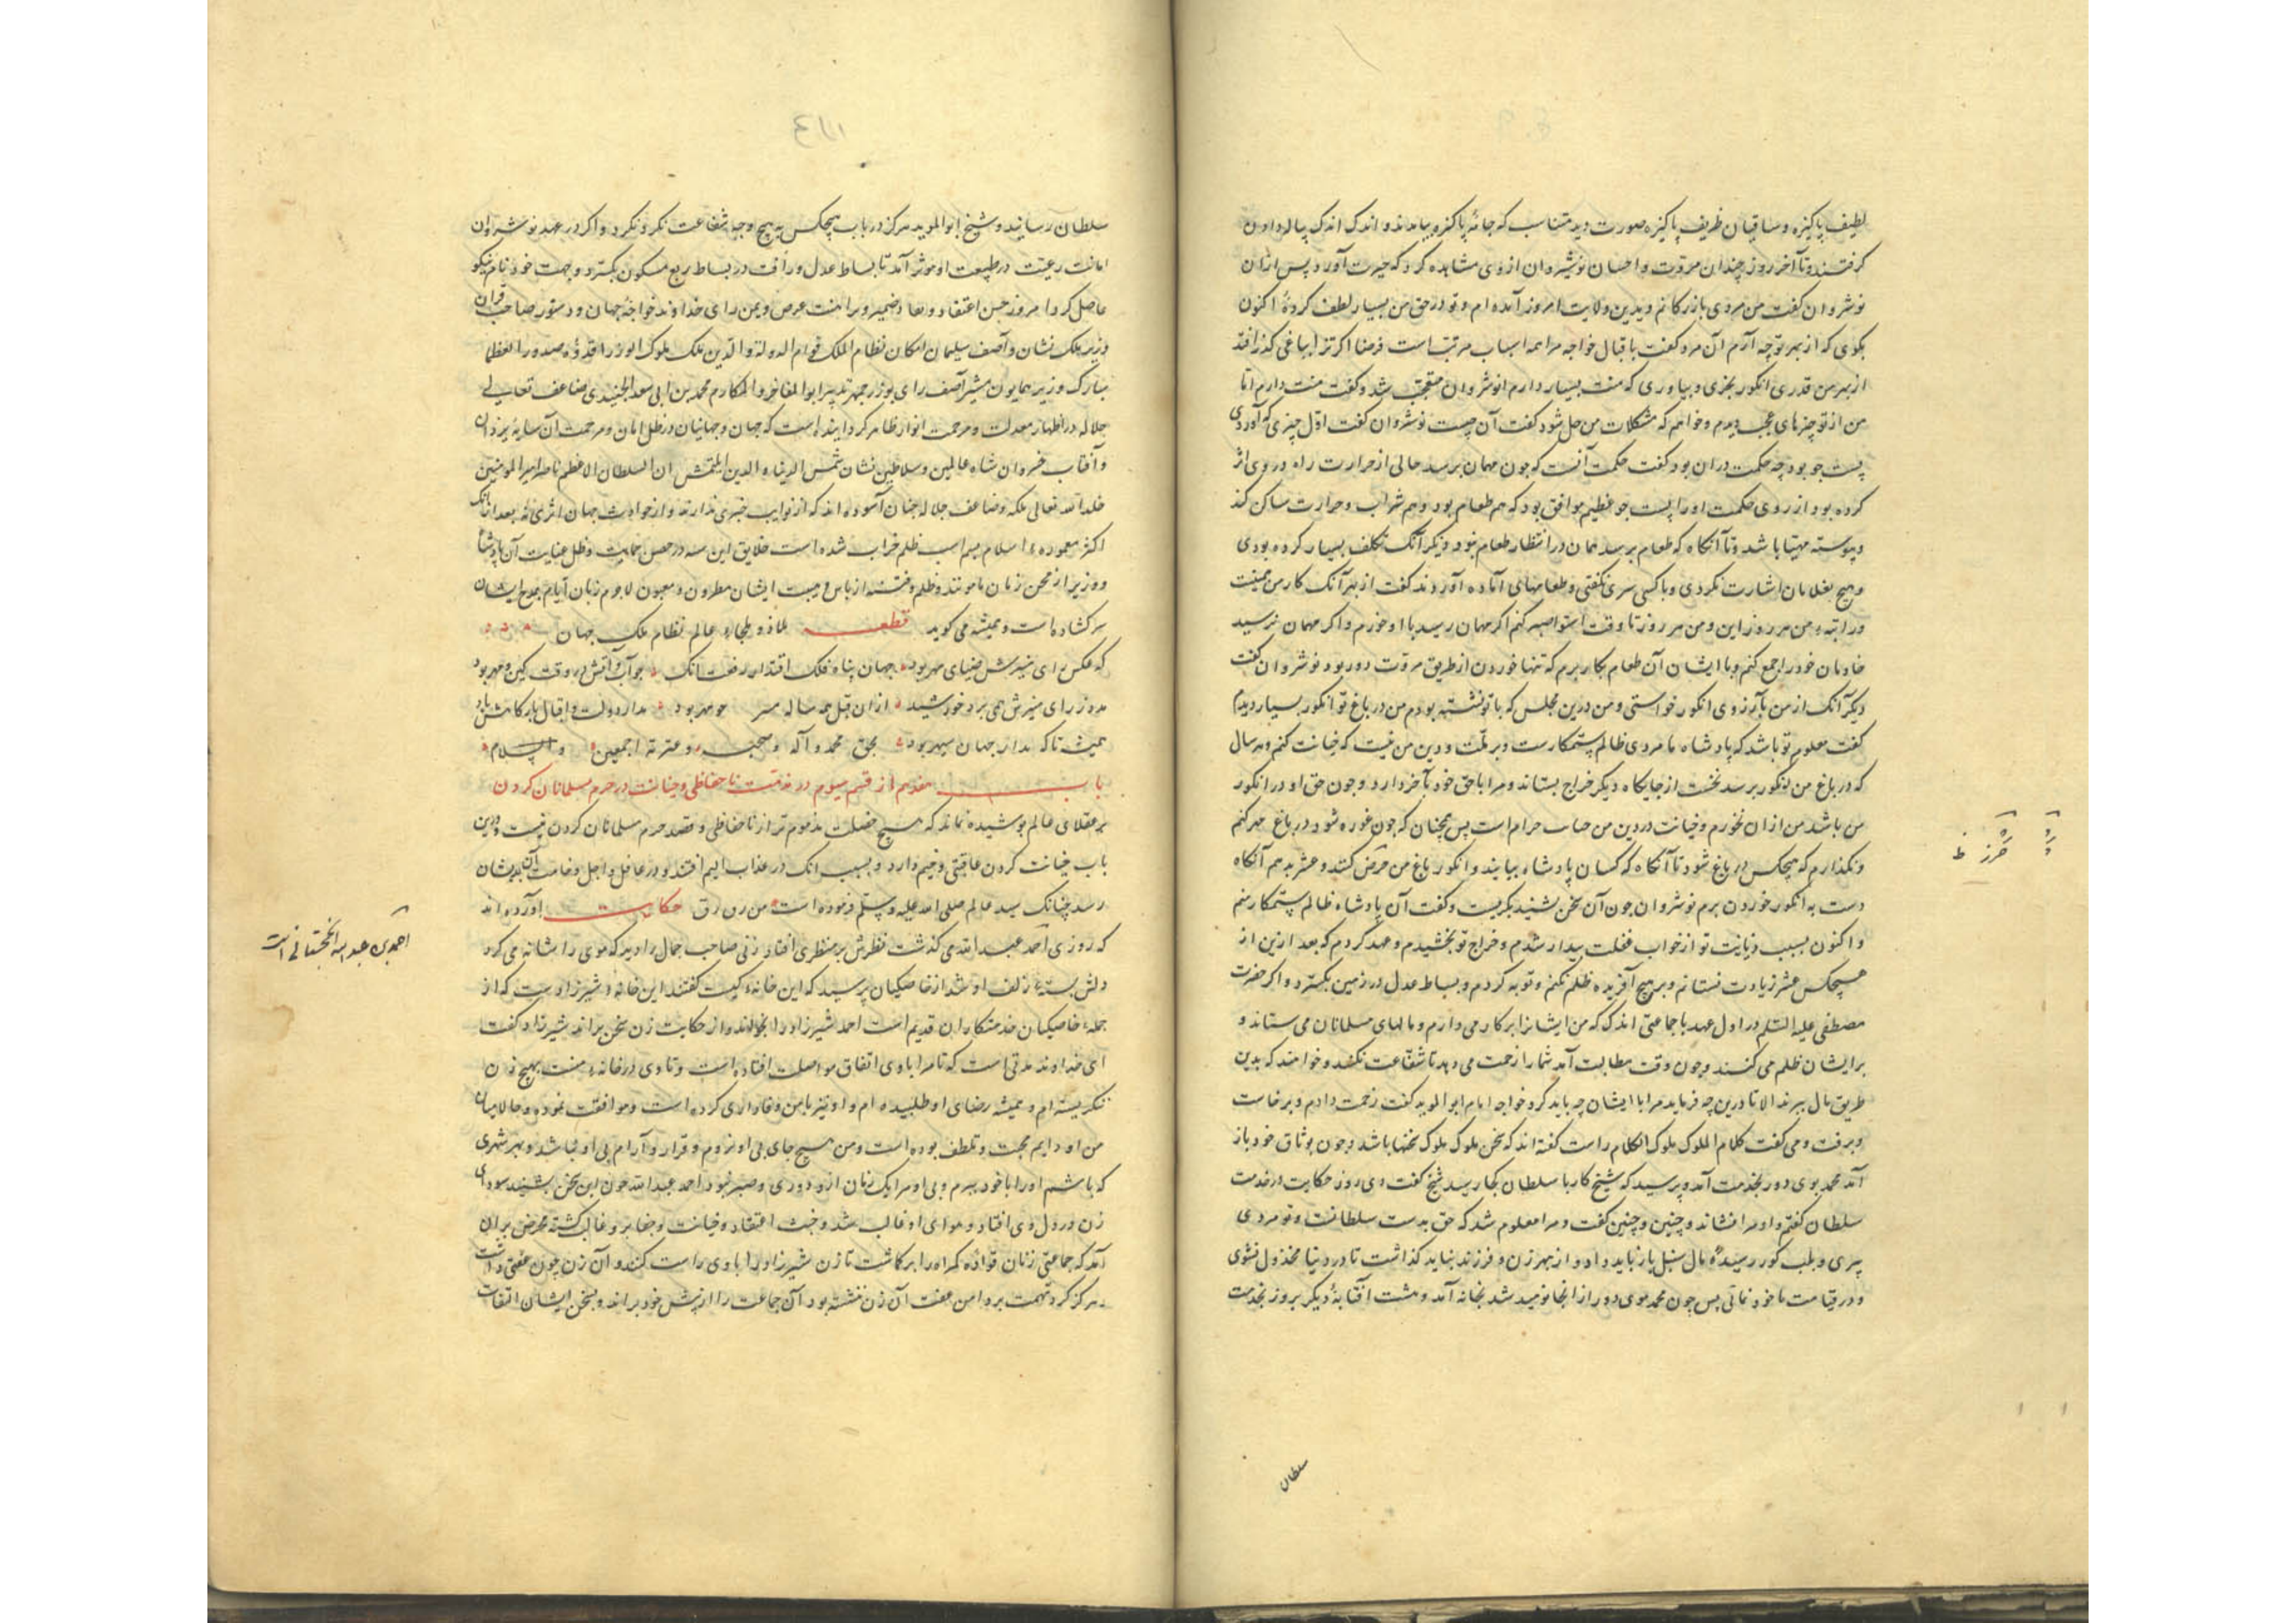 لطیف پاکیزه و ساقیان ظریف پاکیزه صورت دید متناسب که جامهٔ پاکیزه بیامدند و اندک اندک پیاله دادن
گرفتند و تا آخر روز چندان مروت و احسان نوشیروان از وی مشاهده کرد که حیرت آورد پس ازان
نوشروان گفت من مردی بازرگانم و بدین ولایت امروز آمده ام و تو در حق من بسیار لطف کردهٔ اکنون
بگوی که از بهر تو چه آرم آن مرد گفت باقبال خواجه مرا همه اسباب مرتب است فرضا اگر ترا بباغی گذر افتد
از بهر من قدری انگور بخری و بیاوری که منت بسیار دارم انوشروان متعجب شد و گفت منت دارم اما
من از تو چیزهای عجب دیدم و خواهم که مشکلات من حل شود گفت آن چیست نوشروان گفت اول چیزی که آوردی
پست جو بود چه حکمت دران بود گفت حکمت آنست که چون مهمان برسد حالی از حرارت راه در وی اثر
کرده بود از روی حکمت او را پست جو عظیم موافق بود که هم طعام بود و هم شراب و حرارت ساکن کند
و پیوسته مهیا باشد و تا آنگاه که طعام برسد مهمان در انتظار طعام نبود دیگر آنک تکلف بسیار کرده بودی
و هیچ بغلامان اشارت نکردی و با کسی سری نگفتی و طعامهای آماده آوردند گفت از بهر آنک کار من همینست
و راتبهٔ من هر روز این و من هر روز تا وقت استوا صبر کنم اگر مهمان رسید با او خورم و اگر مهمان نرسید
خادمان خود را جمع کنم و با ایشان آن طعام بکار برم که تنها خوردن از طریق مروت دور بود نوشروان گفت
دیگر آنک از من بآرزوی انگور خواستی و من درین مجلس که با تو نشسته بودم من در باغ تو انگور بسیار دیدم
گفت معلوم تو باشد که پادشاه ما مردی ظالم ستمکارست و بر ملت و دین من نیست که خیانت کنم و هر سال
که در باغ من انگور برسد نخست از جایگاه دیگر خراج بستاند و مرا با حق خود بآخر دارد و چون حق او در انگور
من باشد من ازان نخورم و خیانت در دین من حساب حرام است پس همچنان که چون غوره شود در باغ مهر کنم
و نگذارم که هیچکس در باغ شود تا آنگاه که کسان پادشاه بیایند و انگور باغ من حرض کنند و عشر بدهم آنگاه
دست به انگور خوردن برم نوشروان چون آن سخن بشنید بگریست و گفت آن پادشاه ظالم ستمکار منم
و اکنون بسبب دیانت تو از خواب غفلت بیدار شدم و خراج تو بخشیدم و عهد کردم که بعد ازین از
هیچکس عشر زیادت نستانم و بر هیچ آفریده ظلم نکنم و توبه کردم و بساط عدل در زمین بگسترد و اگر حضرت
مصطفی علیه السلم در اول عهد با جماعتی اندک که من ایشانرا بر کار می دارم و مالهای مسلمانان می ستاند و
بر ایشان ظلم می کنند و چون وقت مطالبت آمد شما را زحمت می دهد تا شفاعت کنند و خواهند که بدین
طریق مال ببرند الا تا درین چه فرماید مرا با ایشان چه باید کرد خواجه امام ابو الموید گفت زحمت دادم و برخاست
و برفت و می گفت کلام الملوک ملوک الکلام راست گفته اند که سخن ملوک ملوک سخنها باشد و چون بوثاق خود باز
آمد محمد بوی دور بخدمت آمد و پرسید که شیخ کار با سلطان بکجا رسید شیخ گفت دی روز حکایت در خدمت
سلطان گفتم و او مرا نشاند و چنین و چنین گفت و مرا معلوم شد که حق بدست سلطانست و تو مردی
پیری و بلب گور رسیدهٔ مال سنبل باز باید داد و از بهر زن و فرزند نباید گذاشت تا در دنیا مخذول نشوی
و در قیامت ماخوذ نمانی پس چون محمد موی دور از آنجا نومید شد بخانه آمد و مشت آفتابهٔ دیگر بروز بخدمت
حرز ظ
سلطان
سلطان رسانید و شیخ ابو الموید هرگز در باب هیچکس به هیچ وجه شفاعت نکرد و نکرد و اگر در عهد نوشروان
امانت رعیت در طبیعت او موثر آمد تا بساط عدل و رأفت در بساط ربع مسکون بگسترد و بجهت خود نام نیکو
حاصل کرد امروز حسن اعتقاد و صفاء ضمیر و براءت عرض و یمن رای خداوند خواجهٔ جهان و دستور صاحب قران
وزیر ملک نشان و آصف سلیمان امکان نظام الملک قوام الدولة و الدین ملک ملوک الوزرا قدوه صدور العظما
مبارک وزیر همایون مشیر آصف رای بوزرجمهر تدبیر ابو المفاخر و المکارم محمد بن ابی سعد الجنیدی ضاعف تعالی
جلاله در اظهار معدلت و مرحمت انوار ظاهر گردانیده است که جهان و جهانیان در ظل امان و مرحمت آن سایهٔ یزدان
و آفتاب خسروان شاه عالمین و سلاطین نشان شمس الدنیا و الدین ایلتمش ان السلطان الاعظم ناصر امیر المومنین
خلد الله تعالی ملکه و ضاعف جلاله چنان آسوده اند که از نوایب خبری ندارند و از حوادث جهان اثری نه بعد از آنک
اکثر معمورهٔ اسلام بسم اسب ظلم خراب شده است خلایق این سه در حصن حمایت و ظل عنایت آن پادشاه
و وزیر از محن زمان مامونند و ظلم و فتنه از باس و هیبت ایشان مطرود و معیون لاجرم زبان ایام بمدح ایشان
بر گشاده است و همیشه می گوید قطعه ملاذ و ملجاء عالم نظام ملک جهان
که عکس رای منیرش ضیای مهر بود جهان پناه فلک اقتدار رفعت آنک چو آب و آتش در وقت کین و مهر بود
مدار دولت و اقبال باد کامش باد
همیشه تا که مدار جهان سپهر بود بحق محمد و آله و صحبه و عترته اجمعین و السلام
باب هفدهم از قسم سیوم در مذمت ناحفاظی و خیانت در حرم مسلمانان کردن
بر عقلای عالم پوشیده نماند که هیچ خصلت مذموم تر از ناحفاظی و قصد حرم مسلمانان کردن نیست و درین
باب خیانت کردن عاقبتی وخیم دارد و بسبب آنک در عذاب الیم افتند و در عاجل و آجل وخامت آن بدیشان
رسد چنانک سید عالم صلی الله علیه و سلم فرموده است من زن زنی حکایت آورده اند
که روزی احمد عبد الله می گذشت نظرش بر منظری افتاد زنی صاحب جمال را دید که موی را شانه می کرد
دلش بستهٔ زلف او شد از خاصکیان پرسید که این خانهٔ کیست گفتند این خانهٔ شیرزادست که از
جملهٔ خاصکیان خدمتکاران قدیم است احمد شیرزاد را بخواند و از حکایت زن سخن براند شیرزاد گفت
ای خداوند مدتی است که تا مرا با وی اتفاق مواصلت افتاده است و تا وی در خانهٔ منست بهیچ زن
ننگریسته ام و همیشه رضای او طلبیده ام و او نیز با من وفاداری کرده است و موافقت نموده و حالا میان
من او دایم محبت و تلطف بوده است و من هیچ جای بی او نروم و قرار و آرام بی او نباشد و بهر شهری
که باشم او را با خود ببرم و بی او مرا یک زمان از و دوری و صبر نبود احمد عبد الله چون این سخن بشنید سودای
زن در دل وی افتاد و هوای او غالب شد و خبث اعتقاد و خیانت و جفا بر و غالب گشته محرض بران
آمد که جماعتی زنان قواده گمراه را بر گماشت تا زن شیرزاد را با وی راست کنند و آن زن چون عفتی داشت
هرگز گرد تهمت بر دامن عفت آن زن ننشسته بود آن جماعت را از پیش خود براند و بسخن ایشان التفات
احمد بن عبد الله الخجستانی است